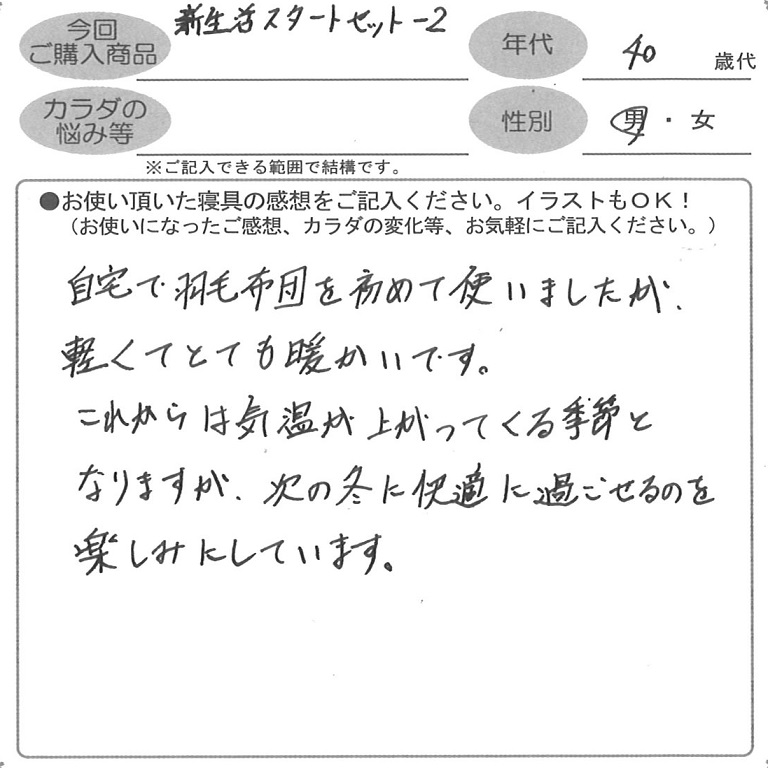 今回
ご購入商品
新生活スタートセット-2
年代
40 歳代
カラダの
悩み等
性別
男・女
※ご記入できる範囲で結構です。
●お使い頂いた寝具の感想をご記入ください。イラストもOK！
（お使いになったご感想、カラダの変化等、お気軽にご記入ください。）
自宅で羽毛布団を初めて使いましたが、
軽くてとても暖かいです。
これからは気温が上がってくる季節と
なりますが、次の冬に快適に過ごせるのを
楽しみにしています。